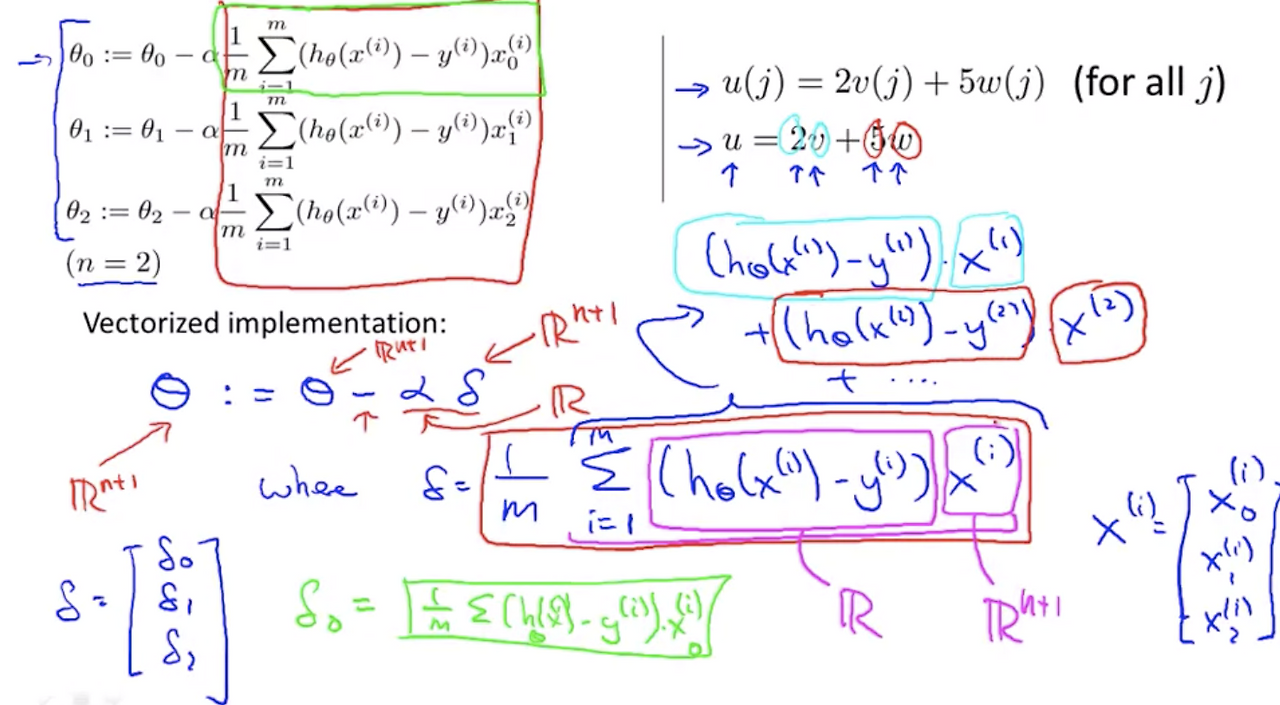 θ₀ := θ₀ − α 1/m ∑ᵢ₌₁ᵐ (h_θ(x⁽ⁱ⁾) − y⁽ⁱ⁾)x₀⁽ⁱ⁾
θ₁ := θ₁ − α 1/m ∑ᵢ₌₁ᵐ (h_θ(x⁽ⁱ⁾) − y⁽ⁱ⁾)x₁⁽ⁱ⁾
θ₂ := θ₂ − α 1/m ∑ᵢ₌₁ᵐ (h_θ(x⁽ⁱ⁾) − y⁽ⁱ⁾)x₂⁽ⁱ⁾
(n = 2)
u(j) = 2v(j) + 5w(j) (for all j)
u = 2v + 5w
(h_θ(x⁽¹⁾) − y⁽¹⁾) · x⁽¹⁾
+ (h_θ(x⁽²⁾) − y⁽²⁾) x⁽²⁾
+ ....
Vectorized implementation:
ℝⁿ⁺¹
ℝⁿ⁺¹
θ := θ − α δ
ℝ
ℝⁿ⁺¹
where δ = 1/m ∑ᵢ₌₁ᵐ (h_θ(x⁽ⁱ⁾) − y⁽ⁱ⁾) x⁽ⁱ⁾
ℝ
ℝⁿ⁺¹
x⁽ⁱ⁾ = [x₀⁽ⁱ⁾
x₁⁽ⁱ⁾
x₂⁽ⁱ⁾]
δ = [δ₀
δ₁
δ₂]
δ₀ = 1/m ∑ (h_θ(x⁽ⁱ⁾) − y⁽ⁱ⁾) · x₀⁽ⁱ⁾